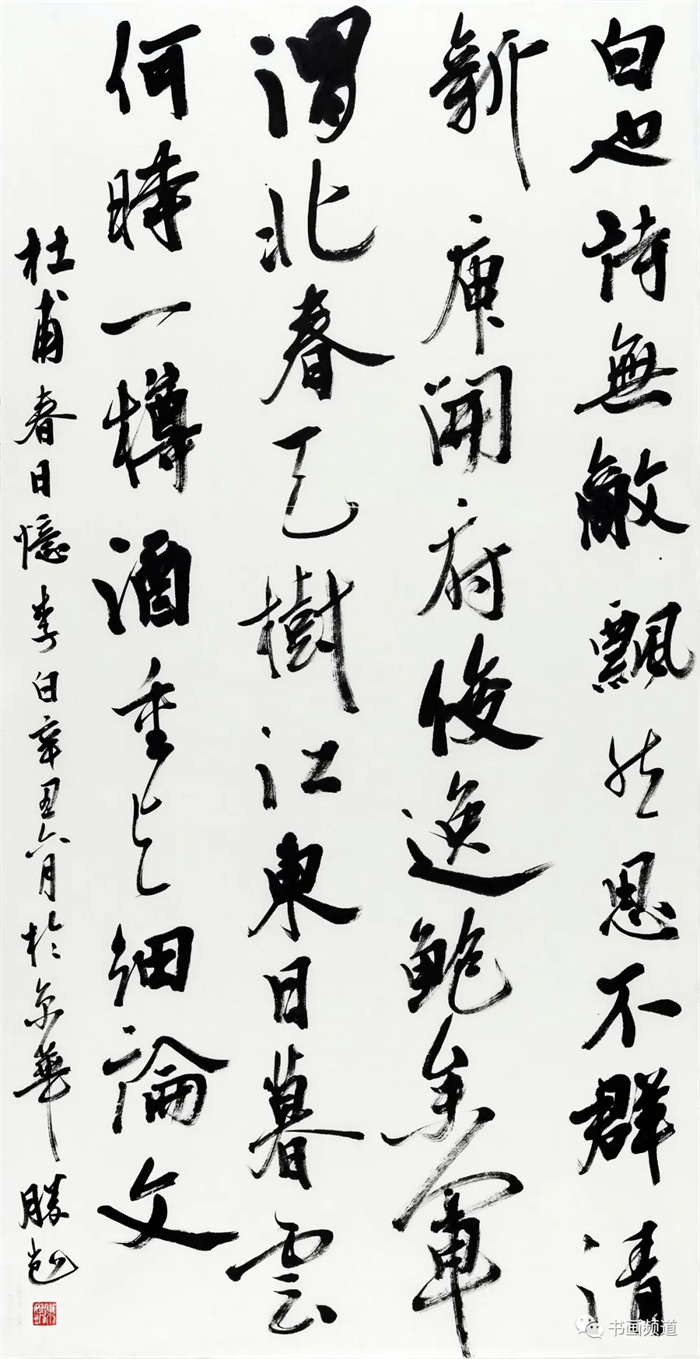 白也詩無敵飄然思不群清
新庾開府俊逸鮑參軍
渭北春天樹江東日暮雲
何時一樽酒重与細論文
杜甫春日憶李白辛丑六月於京華勝
书画频道